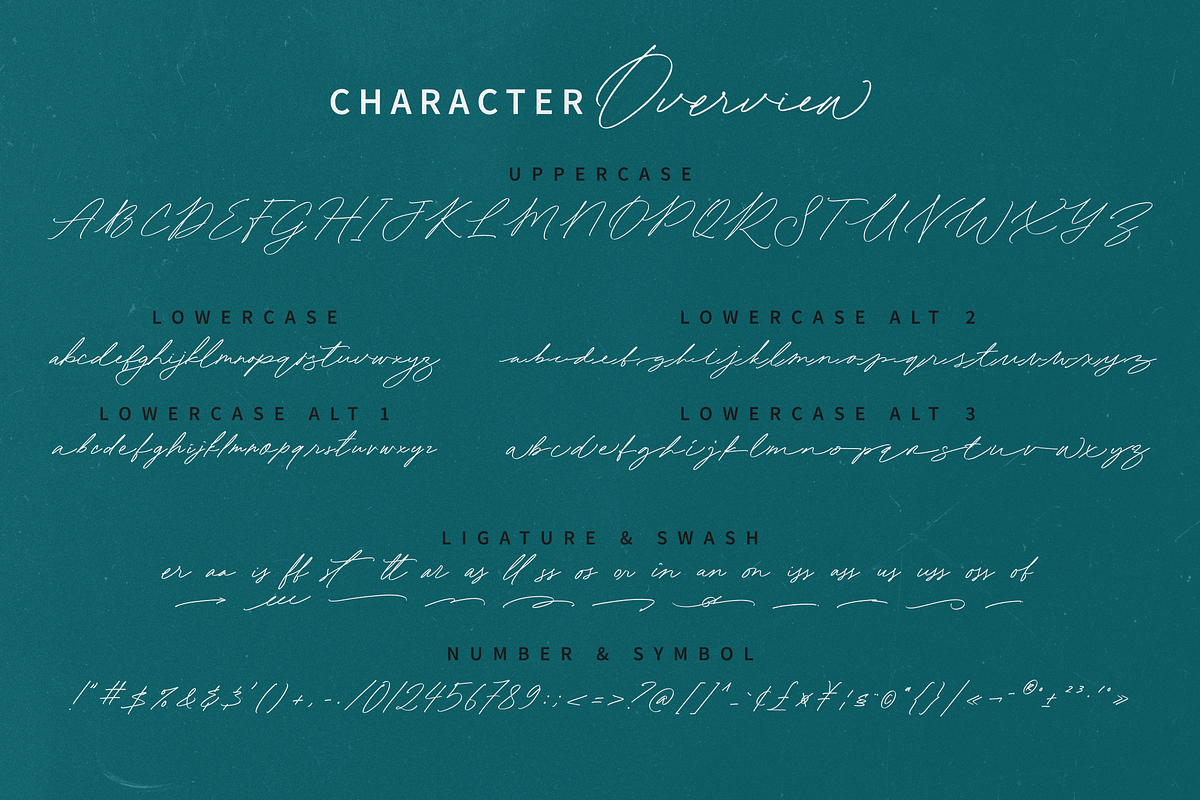 CHARACTER Overview
UPPERCASE
ABCDEFGHIJKLMNOPQRSTUVWXYZ
LOWERCASE
abcdefghijklmnopqrstuvwxyz
LOWERCASE ALT 1
abcdefghijklmnopqrstuvwxyz
LOWERCASE ALT 2
abcdefghijklmnopqrstuvwxyz
LOWERCASE ALT 3
abcdefghijklmnopqrstuvwxyz
LIGATURE & SWASH
er aa is ff st tt ar as ll ss os or in an on iss ass us uss oss of
NUMBER & SYMBOL
!"#$%&'()+,-./012456789:;<=>?@[]^_`¢£¤¥¦§¨©ª{}/«¬¯®°±²³·¹º»